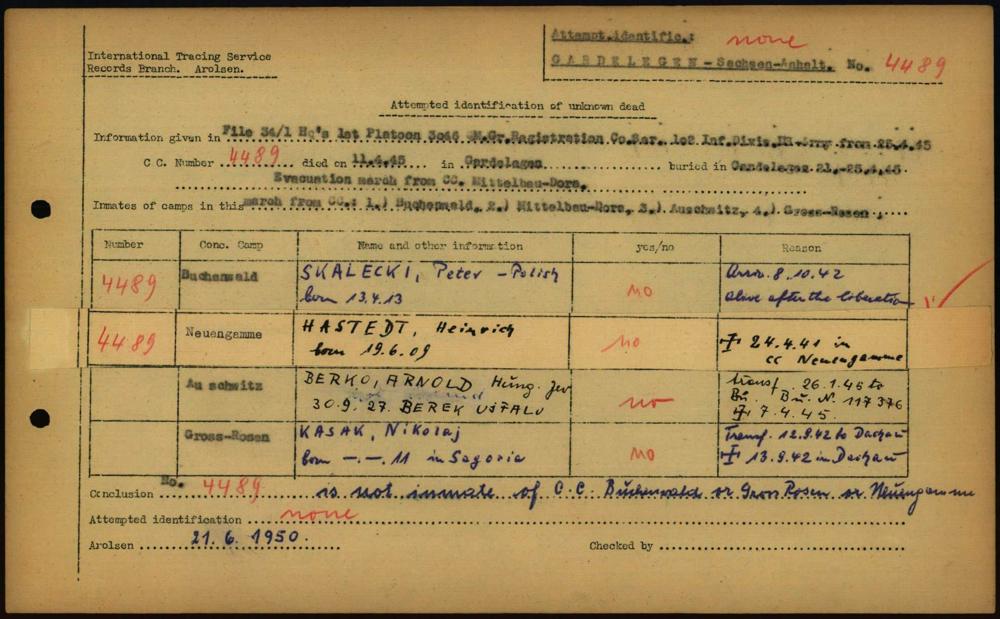 International Tracing Service
Records Branch. Arolsen.
Attempt.identific.: none
GARDELEGEN - Sachsen-Anhalt. No. 4489
Attempted identification of unknown dead
Information given in File 34/1 Hq's 1st Platoon 3046 Gr.Registration Co.Ser. 102 Inf.Divis. from 25.4.45
C C. Number 4489 died on 11.4.45 in Gardelegen buried in Gardelegen 21.-25.4.45.
Evacuation march from CC. Mittelbau-Dora.
Inmates of camps in this march from CC.: 1.) Buchenwald, 2.) Mittelbau-Dora, 3.) Auschwitz, 4.) Gross-Rosen.
Number Conc. Camp Name and other information yes/no Reason
4489 Buchenwald SKALECKI, Peter - Polish no Arriv. 8.10.42
born 13.4.13 alive after the liberation
4489 Neuengamme HASTEDT, Heinrich no ✝ 24.4.41 in
born 19.6.09 CC Neuengamme
Auschwitz BERKO, ARNOLD Hung. Jew no transf. 26.1.45 to
30.9.27. BEREK UJFALU Bu. Bu. N. 117376
✝ 7.4.45.
Gross-Rosen KASAK, Nikolaj no Transf. 12.9.42 to Dachau
born -.-.11 in Sagoria ✝ 13.9.42 in Dachau
Conclusion No. 4489 is not inmate of C.C. Buchenwald or Gross Rosen or Neuengamme
Attempted identification none
Arolsen 21. 6. 1950. Checked by